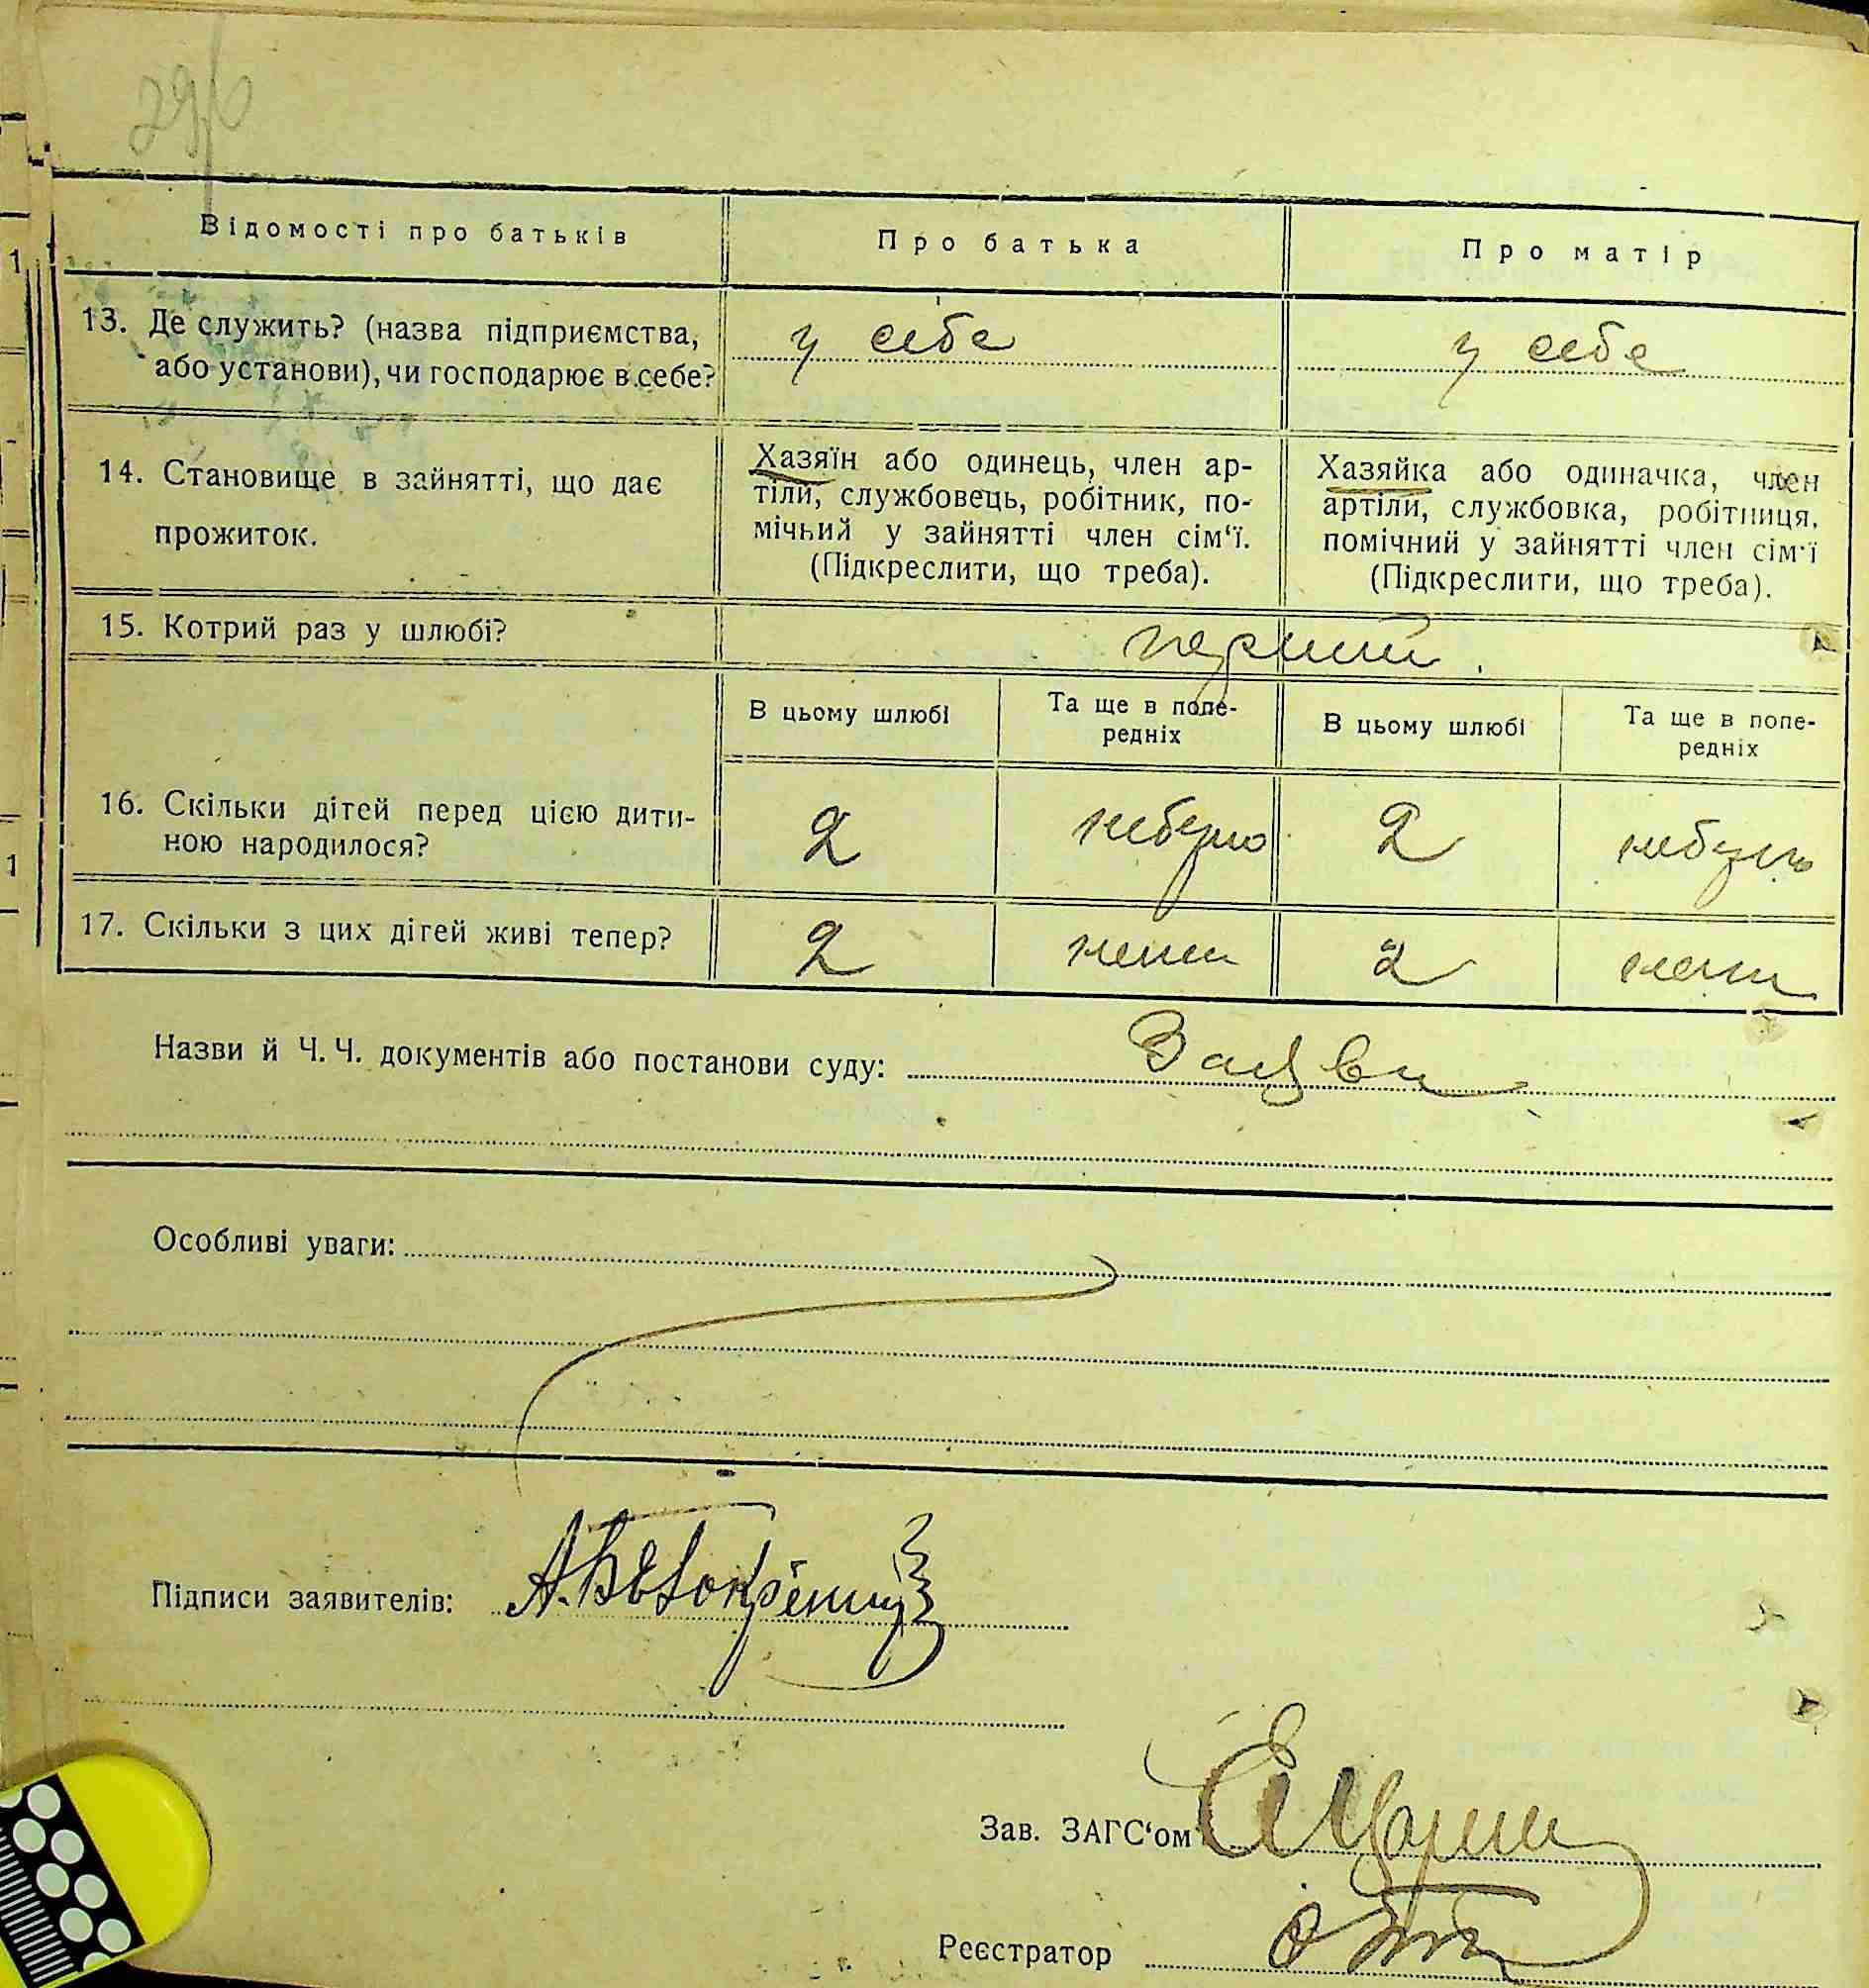 Відомості про батьків
Про батька
Про матір
13. Де служить? (назва підприємства,
або установи), чи господарює в себе?
у себе
у себе
14. Становище в зайнятті, що дає
прожиток.
Хазяїн або одинець, член ар-
тіли, службовець, робітник, по-
мічний у зайнятті член сім‘ї.
(Підкреслити, що треба).
Хазяйка або одиначка, член
артіли, службовка, робітниця,
помічний у зайнятті член сім‘ї
(Підкреслити, що треба).
15. Котрий раз у шлюбі?
перший
В цьому шлюбі
Та ще в попе-
редніх
В цьому шлюбі
Та ще в попе-
редніх
16. Скільки дітей перед цією дити-
ною народилося?
2
небуло
2
небуло
17. Скільки з цих дітей живі тепер?
2
нема
2
нема
Назви й Ч. Ч. документів або постанови суду:
Особливі уваги:
Підписи заявителів:
Зав. ЗАГС‘ом
Реєстратор